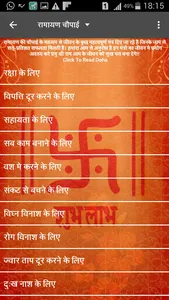 18:15
रामायण चौपाई
Click To Read Doha
रक्षा के लिए
विपत्ति दूर करने के लिए
सहायता के लिए
सब काम बनाने के लिए
वश मे करने के लिए
संकट से बचने के लिए
विघ्न विनाश के लिए
रोग विनाश के लिए
ज्वार ताप दूर करने के लिए
दुःख नाश के लिए
शुभ लाभ